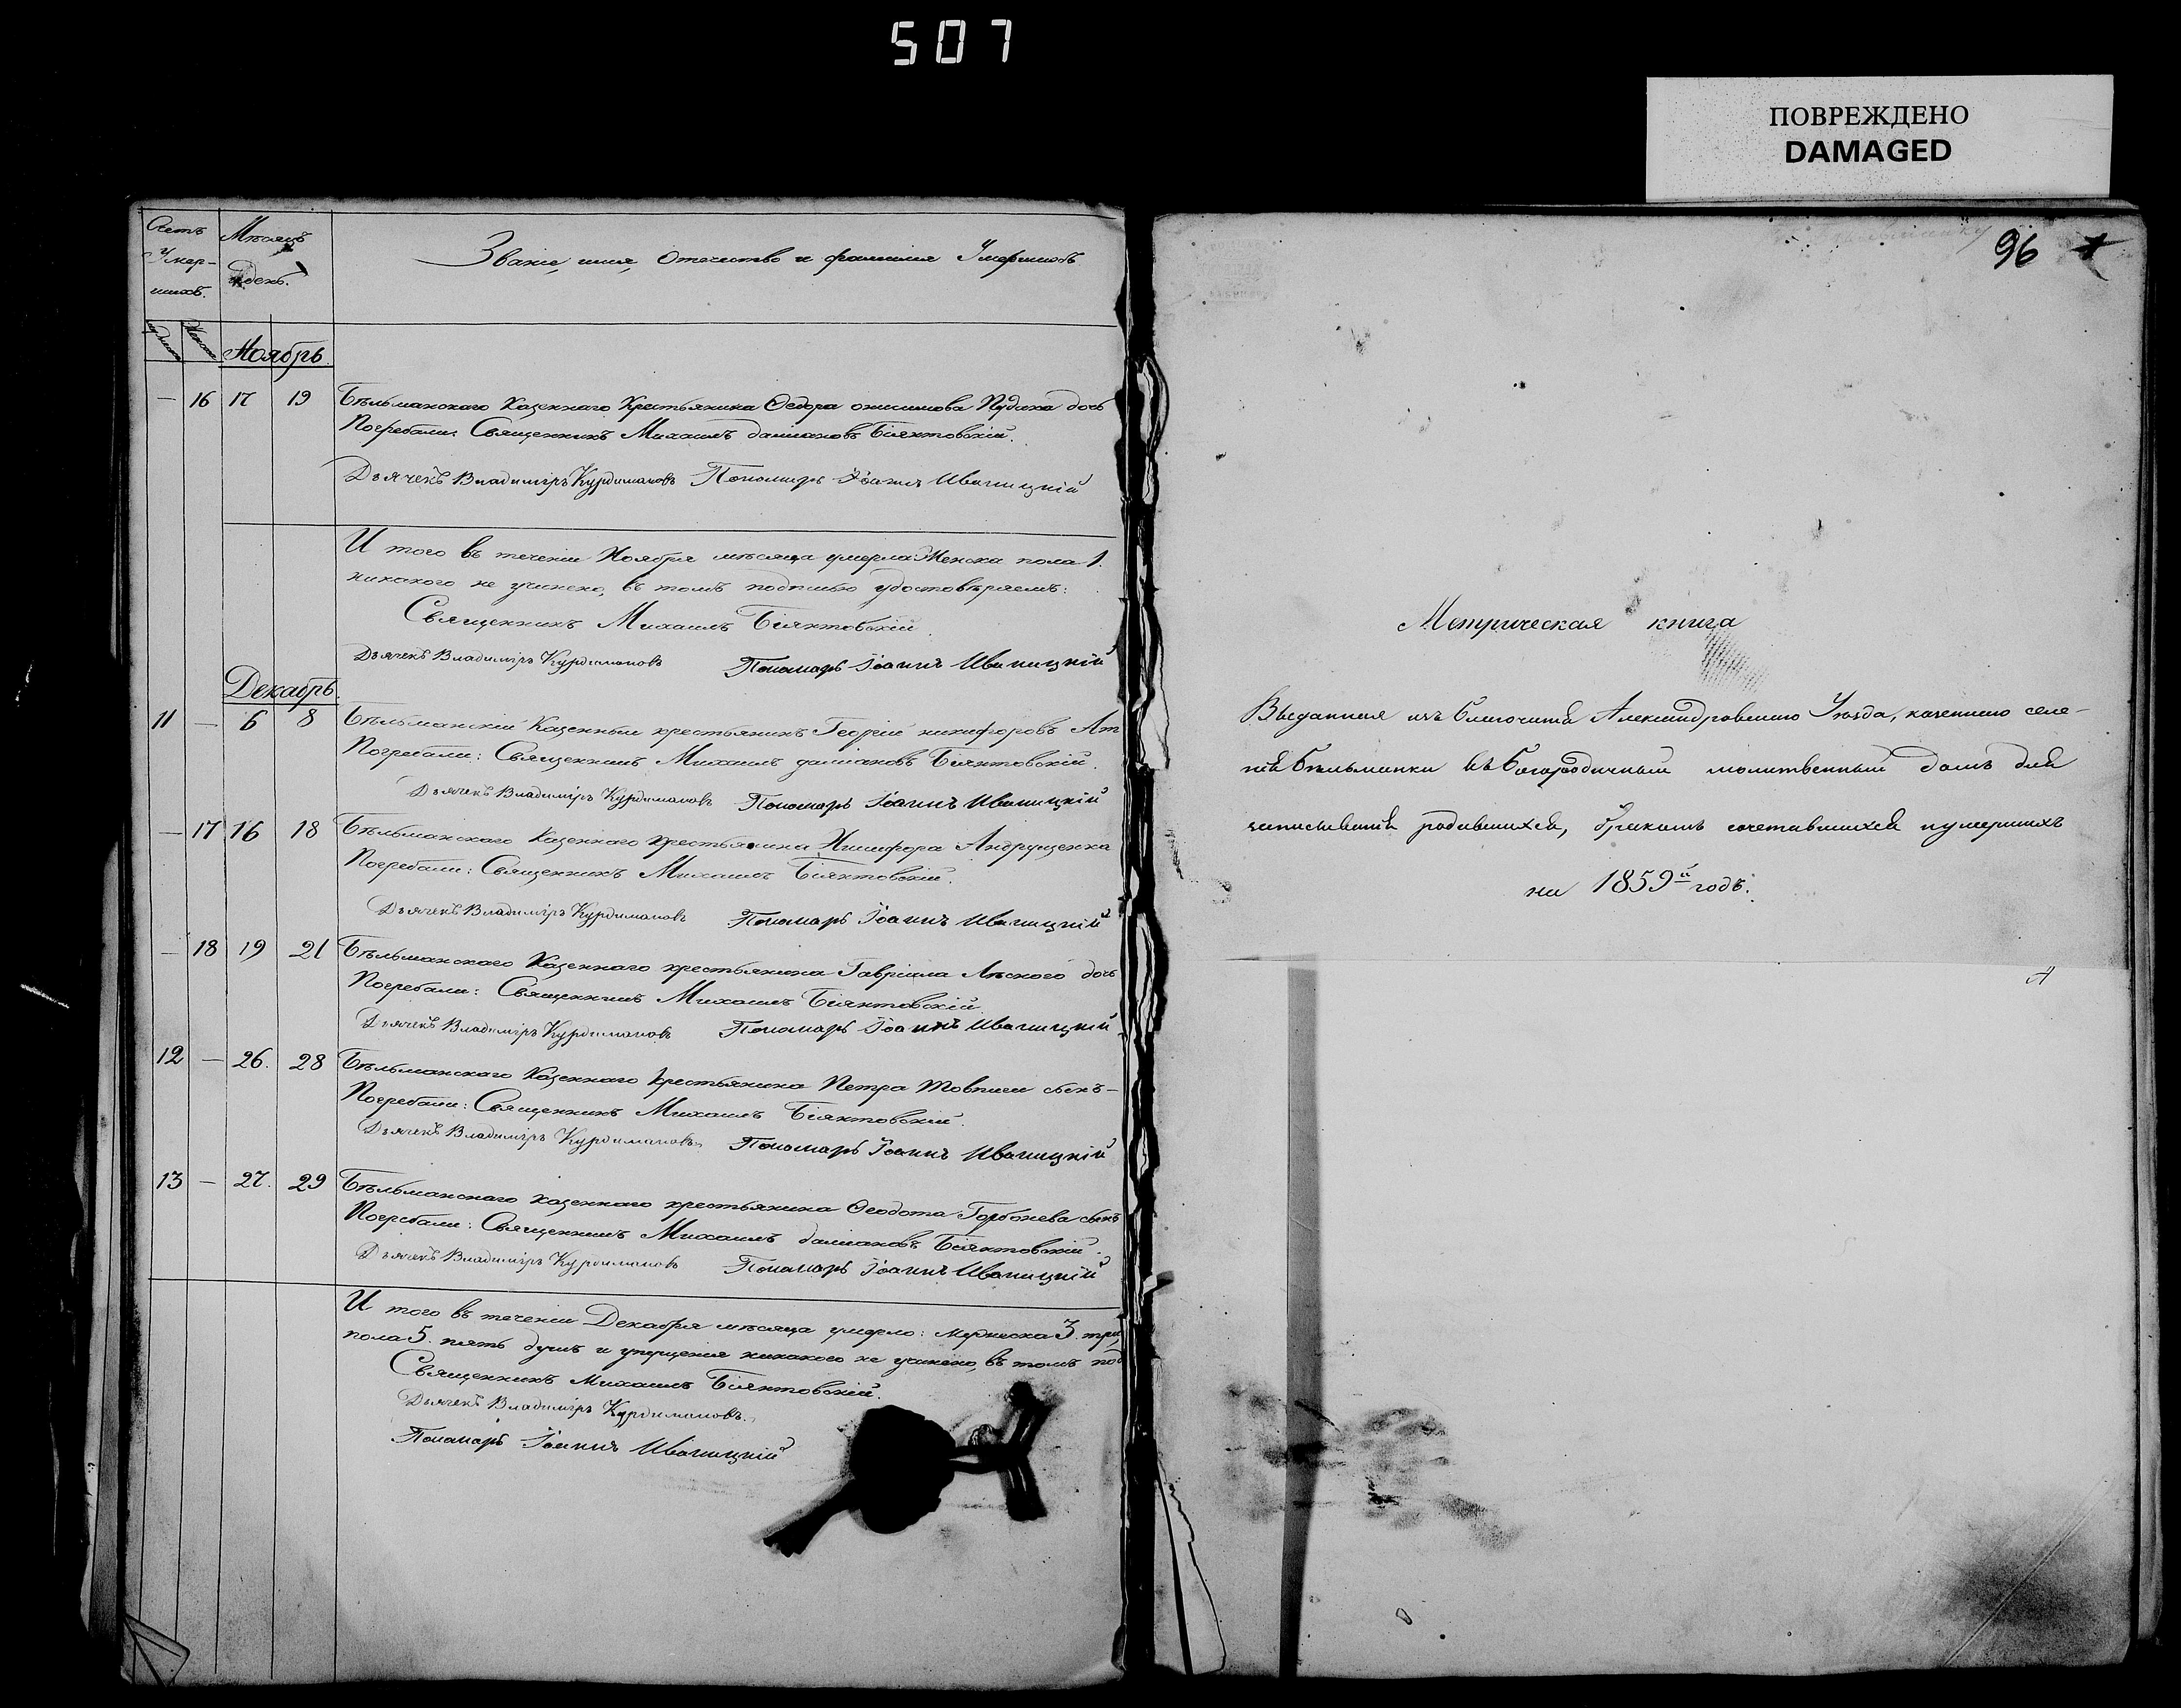 507
ПОВРЕЖДЕНО
DAMAGED
Счетъ Умер-шихъ.
Мѣсяцъ и день.
Званіе, имя, Отечество и фамилия Умершихъ
Ноябрь.
— 16 17 19 Бѣльманскаго Казеннаго Крестьянина Ѳедора онисимова Пудака дочь
Погребали: Священникъ Михаилъ даміановъ Біянтовскій.
Дьячекъ Владиміръ Курдимановъ Пономарь Іоаннъ Иваницкій
И того въ теченіи Ноября мѣсяца умерла Женска пола 1.
никакого не учинено, въ томъ подписью удостовѣряемъ:
Священникъ Михаилъ Біянтовскій.
Дьячекъ Владиміръ Курдимановъ Пономарь Іоаннъ Иваницкій
Декабрь.
11 — 6 8 Бѣльманскій Казенный крестьянинъ Георгій никифоровъ Ат
Погребали: Священникъ Михаилъ даміановъ Біянтовскій.
Дьячекъ Владиміръ Курдимановъ Пономарь Іоаннъ Иваницкій
— 17 16 18 Бѣльманскаго Казеннаго крестьянина Никифора Андрущенка
Погребали: Священникъ Михаилъ Біянтовскій.
Дьячекъ Владиміръ Курдимановъ Пономарь Іоаннъ Иваницкій
— 18 19 21 Бѣльманскаго Казеннаго крестьянина Гавріила Лѣского дочь
Погребали: Священникъ Михаилъ Біянтовскій.
Дьячекъ Владиміръ Курдимановъ Пономарь Іоаннъ Иваницкій
12 — 26. 28 Бѣльманскаго Казеннаго крестьянина Петра Товпиги сынъ-
Погребали: Священникъ Михаилъ Біянтовскій.
Дьячекъ Владиміръ Курдимановъ Пономарь Іоаннъ Иваницкій
13 — 27. 29 Бѣльманскаго казеннаго крестьянина Ѳеодота Горбонева сынъ
Погребали: Священникъ Михаилъ даміановъ Біянтовскій.
Дьячекъ Владиміръ Курдимановъ Пономарь Іоаннъ Иваницкій
И того въ теченіи Декабря мѣсяца умерло: мужеска 3. три,
пола 5. пять душъ и упущенія никакого не учинено, въ томъ под
Священникъ Михаилъ Біянтовскій.
Дьячекъ Владиміръ Курдимановъ.
Пономарь Іоаннъ Иваницкій
96
Метрическая книга
Выданная изъ благочинія Александровскаго Уѣзда, казеннаго селе-
нія Бѣльманки въ Богородичный молитвенный домъ для
записыванія родившихся, бракомъ сочетавшихся и умершихъ
на 1859й годъ.